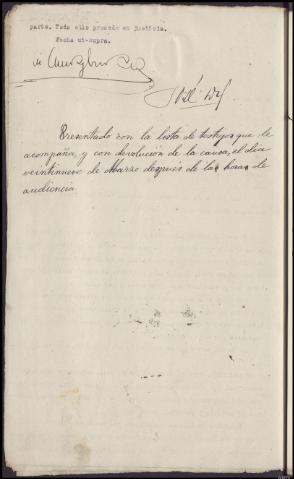 parte. Todo ello procede en Justicia.
Fecha ut-supra.
José
Presentado con la lista de testigos que se
acompaña, y con devolución de la causa, el dia
veintinueve de Marzo despues de las horas de
audiencia